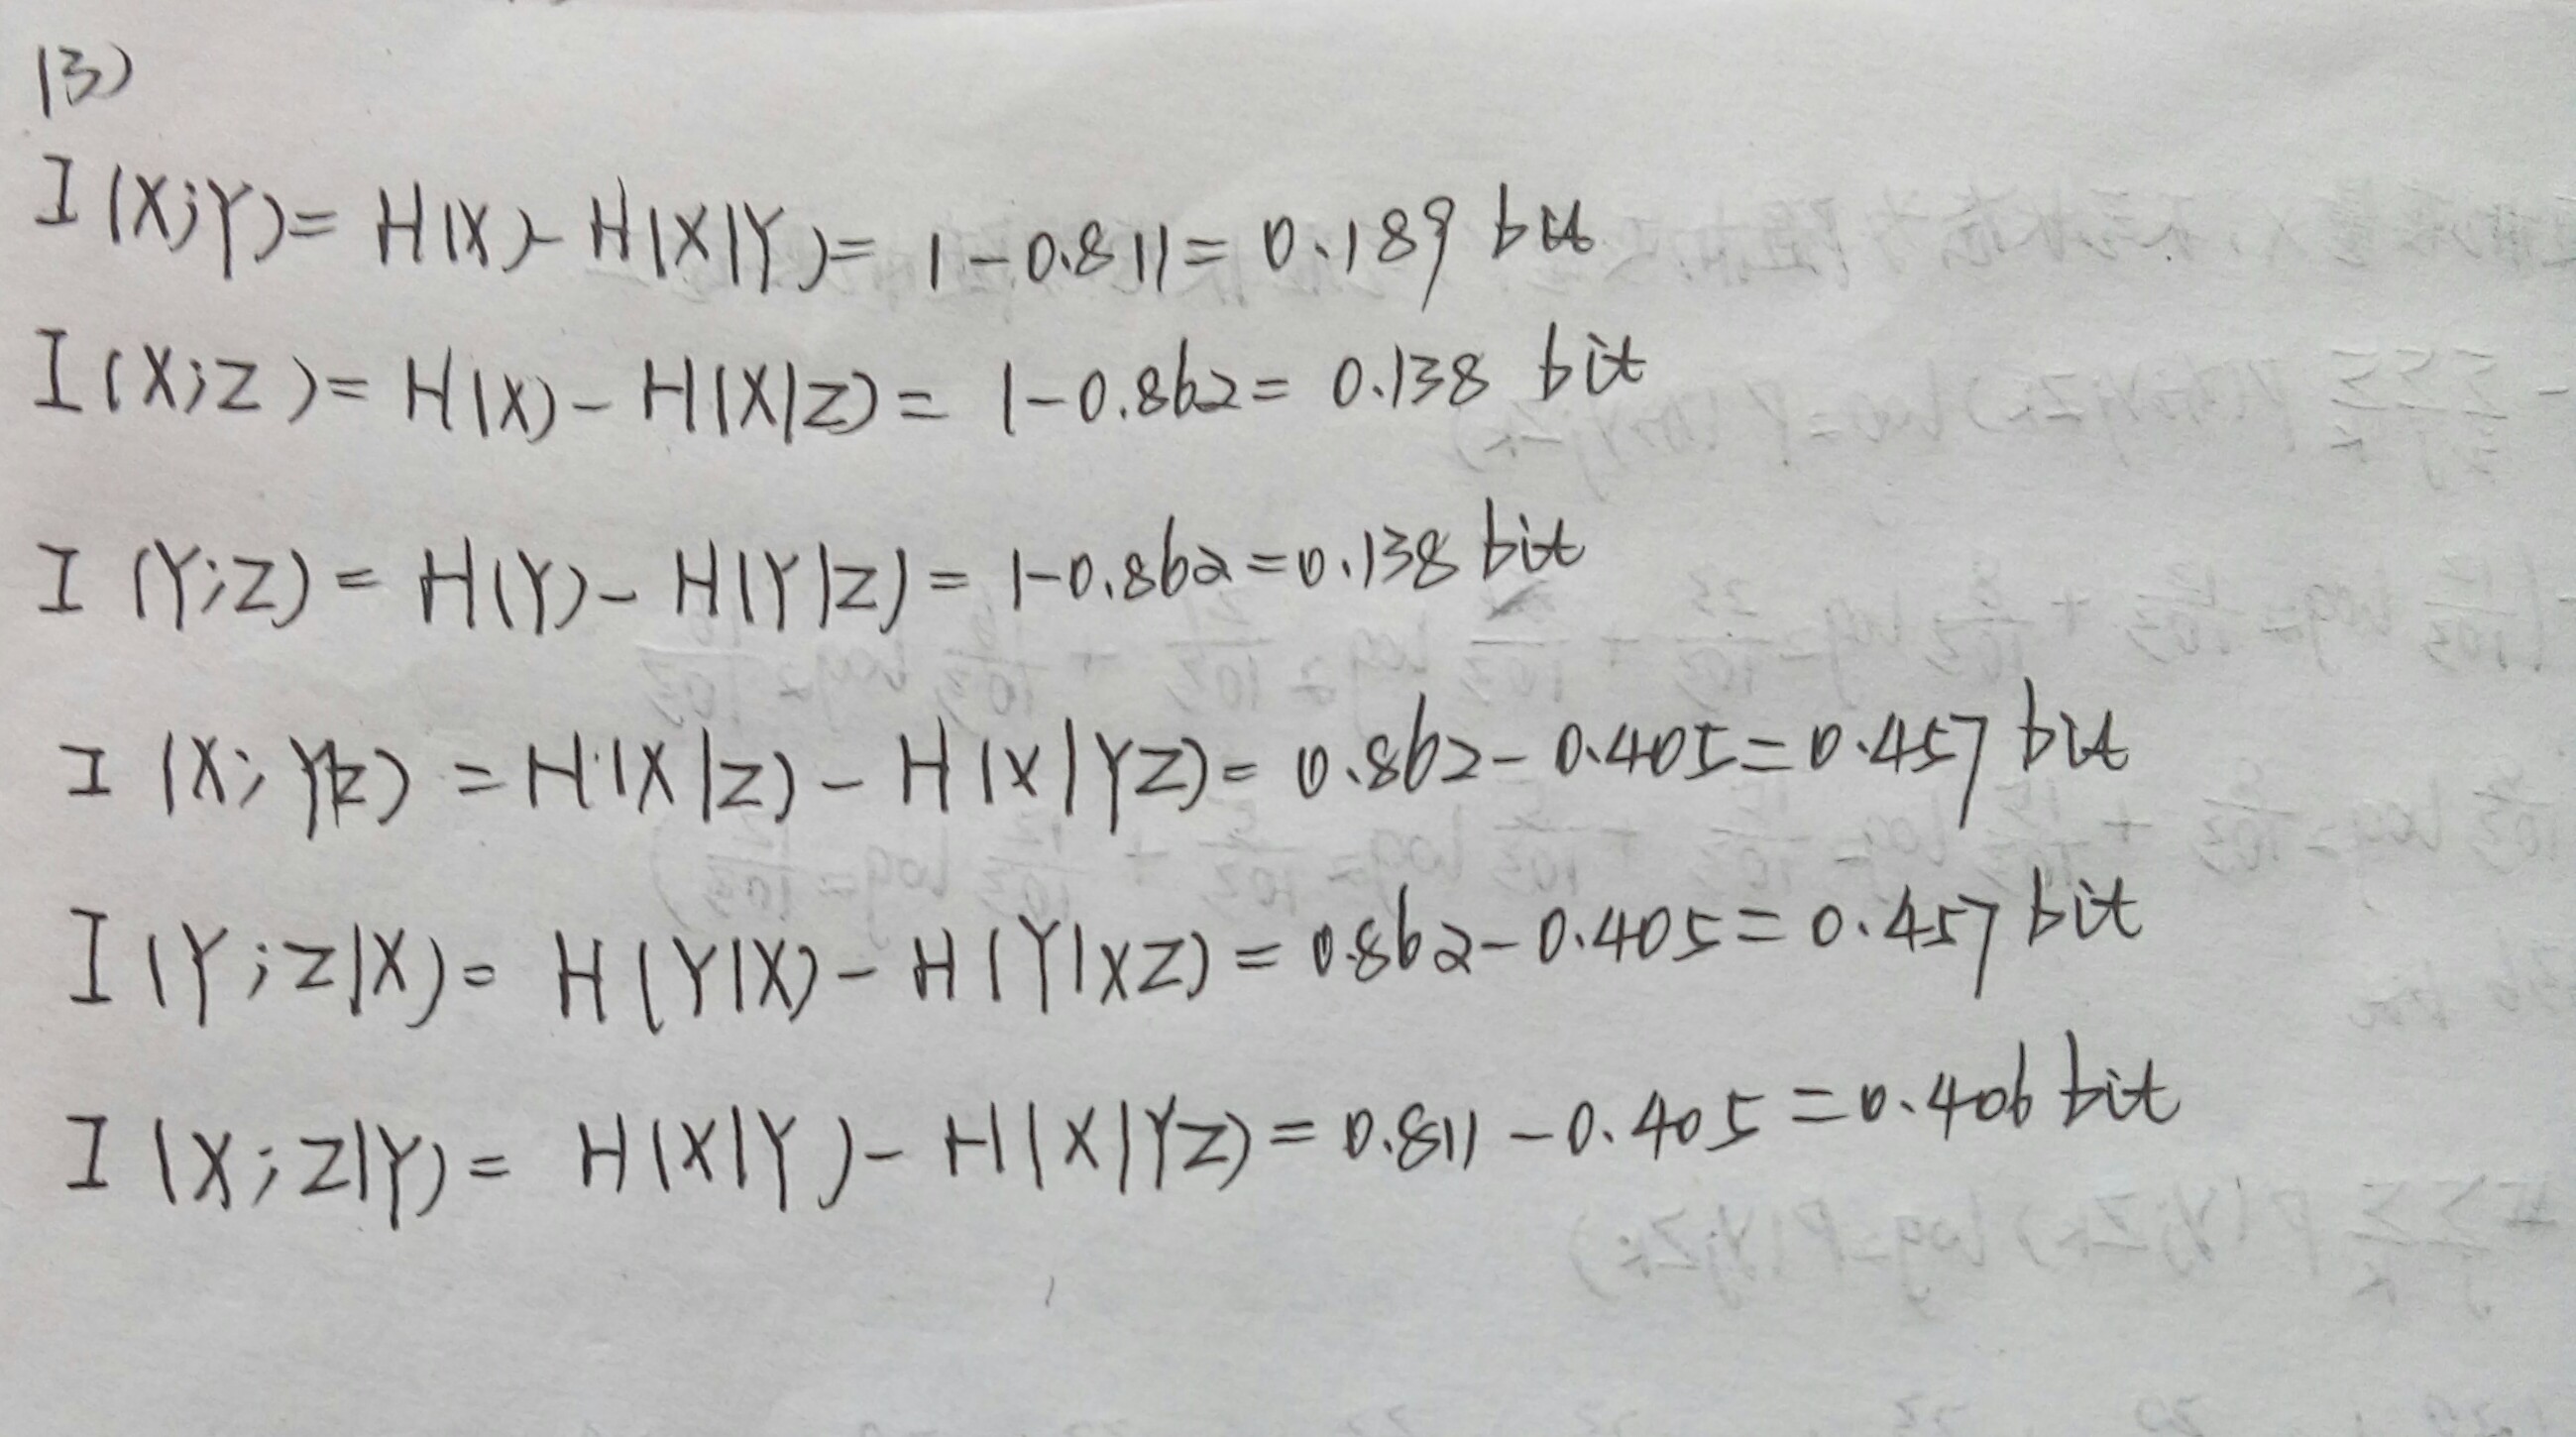 (3)
I(X;Y)= H(X)-H(X|Y)= 1-0.811= 0.189 bit
I(X;Z)= H(X)-H(X|Z)= 1-0.862= 0.138 bit
I(Y;Z)= H(Y)-H(Y|Z)= 1-0.862=0.138 bit
I(X;Y|Z)=H(X|Z)-H(X|YZ)= 0.862-0.405=0.457 bit
I(Y;Z|X)= H(Y|X)-H(Y|XZ)= 0.862-0.405=0.457 bit
I(X;Z|Y)= H(X|Y)-H(X|YZ)= 0.811-0.405=0.406 bit